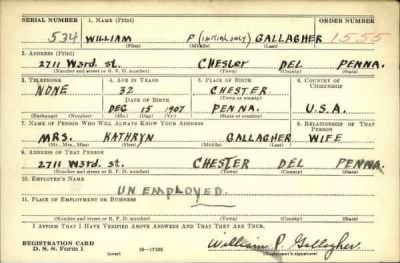 SERIAL NUMBER 1. NAME (Print) ORDER NUMBER
534 WILLIAM P (initial only) GALLAGHER 1555
(First) (Middle) (Last)
2. ADDRESS (Print)
2711 W3rd. st. CHESTER DEL PENNA.
(Number and street or R. F. D. number) (Town) (County) (State)
3. TELEPHONE 4. AGE IN YEARS 5. PLACE OF BIRTH 6. COUNTRY OF CITIZENSHIP
NONE 32 CHESTER
DATE OF BIRTH (Town or county)
DEC 15 1907 PENNA. U.S.A.
(Exchange) (Number) (Mo.) (Day) (Yr.) (State or country)
7. NAME OF PERSON WHO WILL ALWAYS KNOW YOUR ADDRESS 8. RELATIONSHIP OF THAT PERSON
MRS. KATHRYN GALLAGHER WIFE
(Mr., Mrs., Miss) (First) (Middle) (Last)
9. ADDRESS OF THAT PERSON
2711 W3rd. st. CHESTER DEL PENNA.
(Number and street or R. F. D. number) (Town) (County) (State)
10. EMPLOYER'S NAME
UNEMPLOYED.
11. PLACE OF EMPLOYMENT OR BUSINESS
(Number and street or R. F. D. number) (Town) (County) (State)
I AFFIRM THAT I HAVE VERIFIED ABOVE ANSWERS AND THAT THEY ARE TRUE.
REGISTRATION CARD
D. S. S. Form 1 (over) 16—17105 William P. Gallagher.
(Registrant's signature)